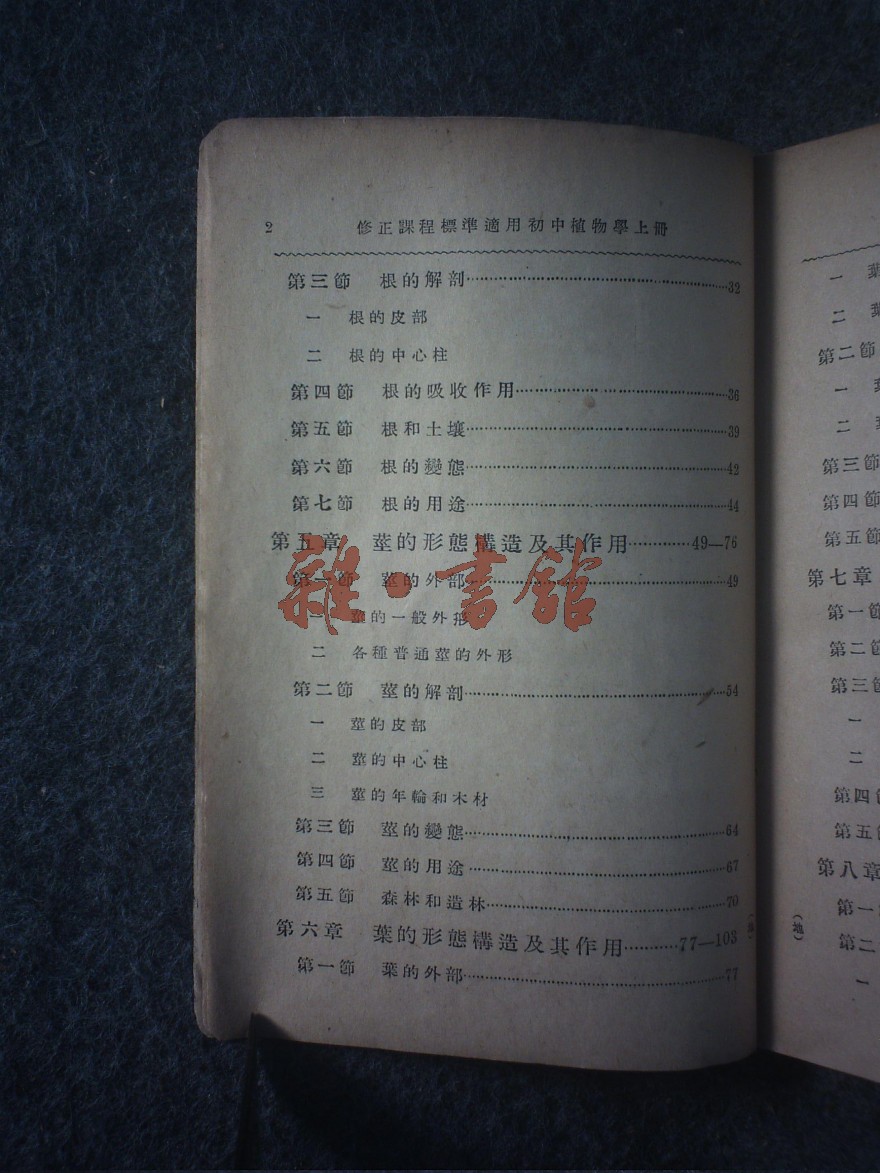 2 修正課程標準適用初中植物學上冊
第三節 根的解剖……32
一 根的皮部
二 根的中心柱
第四節 根的吸收作用……36
第五節 根和土壤……39
第六節 根的變態……42
第七節 根的用途……44
第五章 莖的形態構造及其作用……49—76
第一節 莖的外部……49
一 莖的一般外形
二 各種普通莖的外形
第二節 莖的解剖……54
一 莖的皮部
二 莖的中心柱
三 莖的年輪和木材
第三節 莖的變態……64
第四節 莖的用途……67
第五節 森林和造林……70
第六章 葉的形態構造及其作用……77—103
第一節 葉的外部……77
雜·書館
一 葉
二 葉
第二節
一
二
第三節
第四節
第五節
第七章
第一節
第二節
第三節
一
二
第四節
第五節
第八章
第一節
第二節
一
(地)